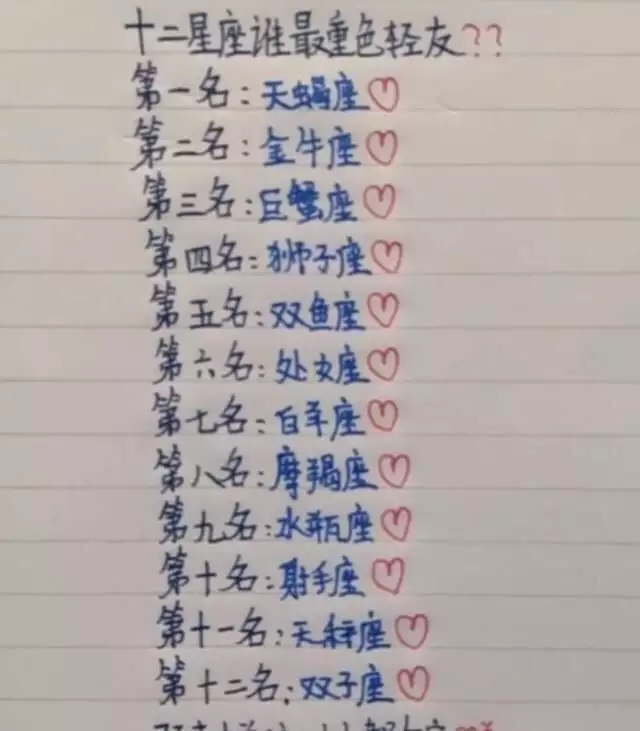 十二星座谁最重色轻友??
第一名:天蝎座♡
第二名:金牛座♡
第三名:巨蟹座♡
第四名:狮子座♡
第五名:双鱼座♡
第六名:处女座♡
第七名:白羊座♡
第八名:摩羯座♡
第九名:水瓶座♡
第十名:射手座♡
第十一名:天秤座♡
第十二名:双子座♡